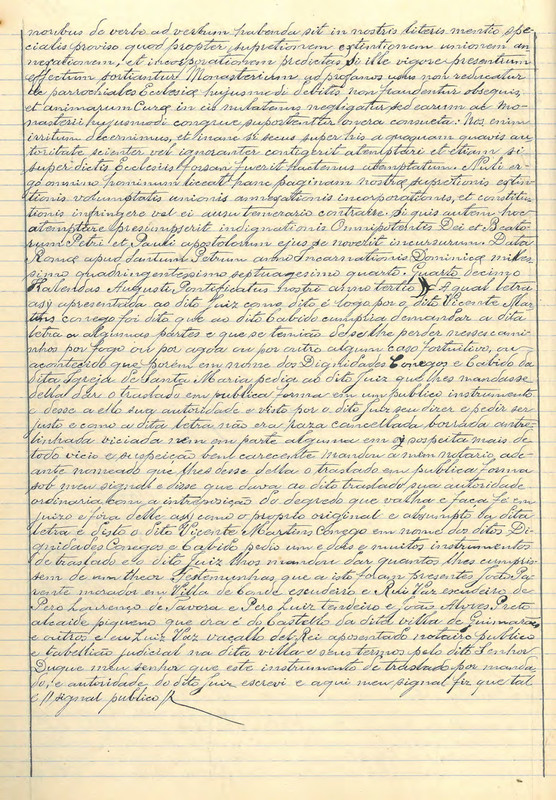 moribus de verbo ad verbum habenda sit in nostris literis mentio spe
cialis proviso quod propter supretionem extintionem unionem an
negationem, et incorporationem predictas si ille vigore presentium
effectum sortiantur Monasterium ad profanos usus non reducatur
Parrochiales Ecclesiæ hujusmodi debitis non fraudentur obsequiis
et animarum Cura in eis nulatenus negligatur sed earum ac Mo
nasterii hujusmodi congrue suportentur onera consueta: Nos enim
irritum decernimus, et inane si secus super his a quoquam quavis au
toritate scienter vel ignoranter contigerit atemptari et etium si
super dictis Ecclesiis forsan fuerit hactenus atemptatum. Nuli er
go omnino hominum liceat hanc paginam nostræ supretionis extin
tionis voluntatis unionis annegationis incorporationis, et constitu
tionis infringere vel ei ausu temerario contraire. Si quis autem hoc
atemptare presumpserit indignationis Omnipotentis Dei et Beato
rum Petri et Pauli apostolorum ejus se noverit incursurum. Data
Romæ apud Santum Petrum anno Incarnationis Dominicæ mile
simo quadringentessimo septuagesimo quarto. Quarto decimo
Kalendas Augusti, Pontificatus nostri anno tertio A qual letra
asy apresentada ao dito Juiz como dito é logo por o dito Vicente Mar
tins conego foi dito que ao dito Cabido cumpria demandar a dita
letra a algumas partes e que se temião de se lhe perder nesses cami
nhos por fogo ou por agoa ou por outro algum caso fortuitivo, ou
acontecido que porém em nome dos Dignidades Conegos e Cabido da
dita Igreja de Santa Maria pedia ao dito Juiz que lhes mandasse
della dar o traslado em publica forma em um publico instrumento
e desse a ello sua autoridade e visto por o dito Juiz seu dizer e pedir ser
justo e como a dita letra não era raza cancellada borrada antre
linhada viciada nem em parte alguma em sy sospeita mais de
todo vicio e suspeição bem carecente mandou a mim notario ade
ante nomeado que lhes desse della o traslado em publica forma
sob meu signal e disse que dava ao dito traslado sua autoridade
ordinaria com a intreposição do degredo que valha e faça fé em
juizo e fóra delle asy como o proprio original e absumpto da dita
letra e disto o dito Vicente Martins Conego em nome dos ditos Di
gnidades Conegos e Cabido pedio um e dois e muitos instrumentos
de traslado e o dito Juiz lhos mandou dar quantos lhes cumpris
sem de um theor. Testemunhas que a isto foram presentes João Pa
rente morador em Villa de Conde escudeiro e Rui Vaz escudeiro de
Pero Lourenço de Tavora e Pero Luiz tendeiro e João Alvres Preto
alcaide piqueno que ora é do Castello da dita villa de Guimarães
e outros e eu Luiz Vaz vaçallo del Rei aposentado notairo publico
e tabellião judicial na dita villa e seus termos pelo dito Senhor
Duque meu senhor que este instrumento de traslado por manda
do, e autoridade do dito Juiz escrevi e aqui meu signal fiz que tal
é // signal publico //